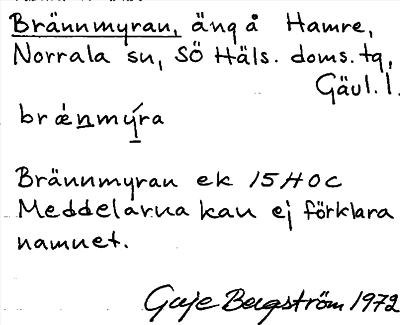 Brännmyran, äng å Hamre,
Norrala sn, SÖ Häls. doms. tg,
Gävl. l.
brǽnmýra
Brännmyran ek 15H0c
Meddelarna kan ej förklara
namnet.
Guje Bergström 1972